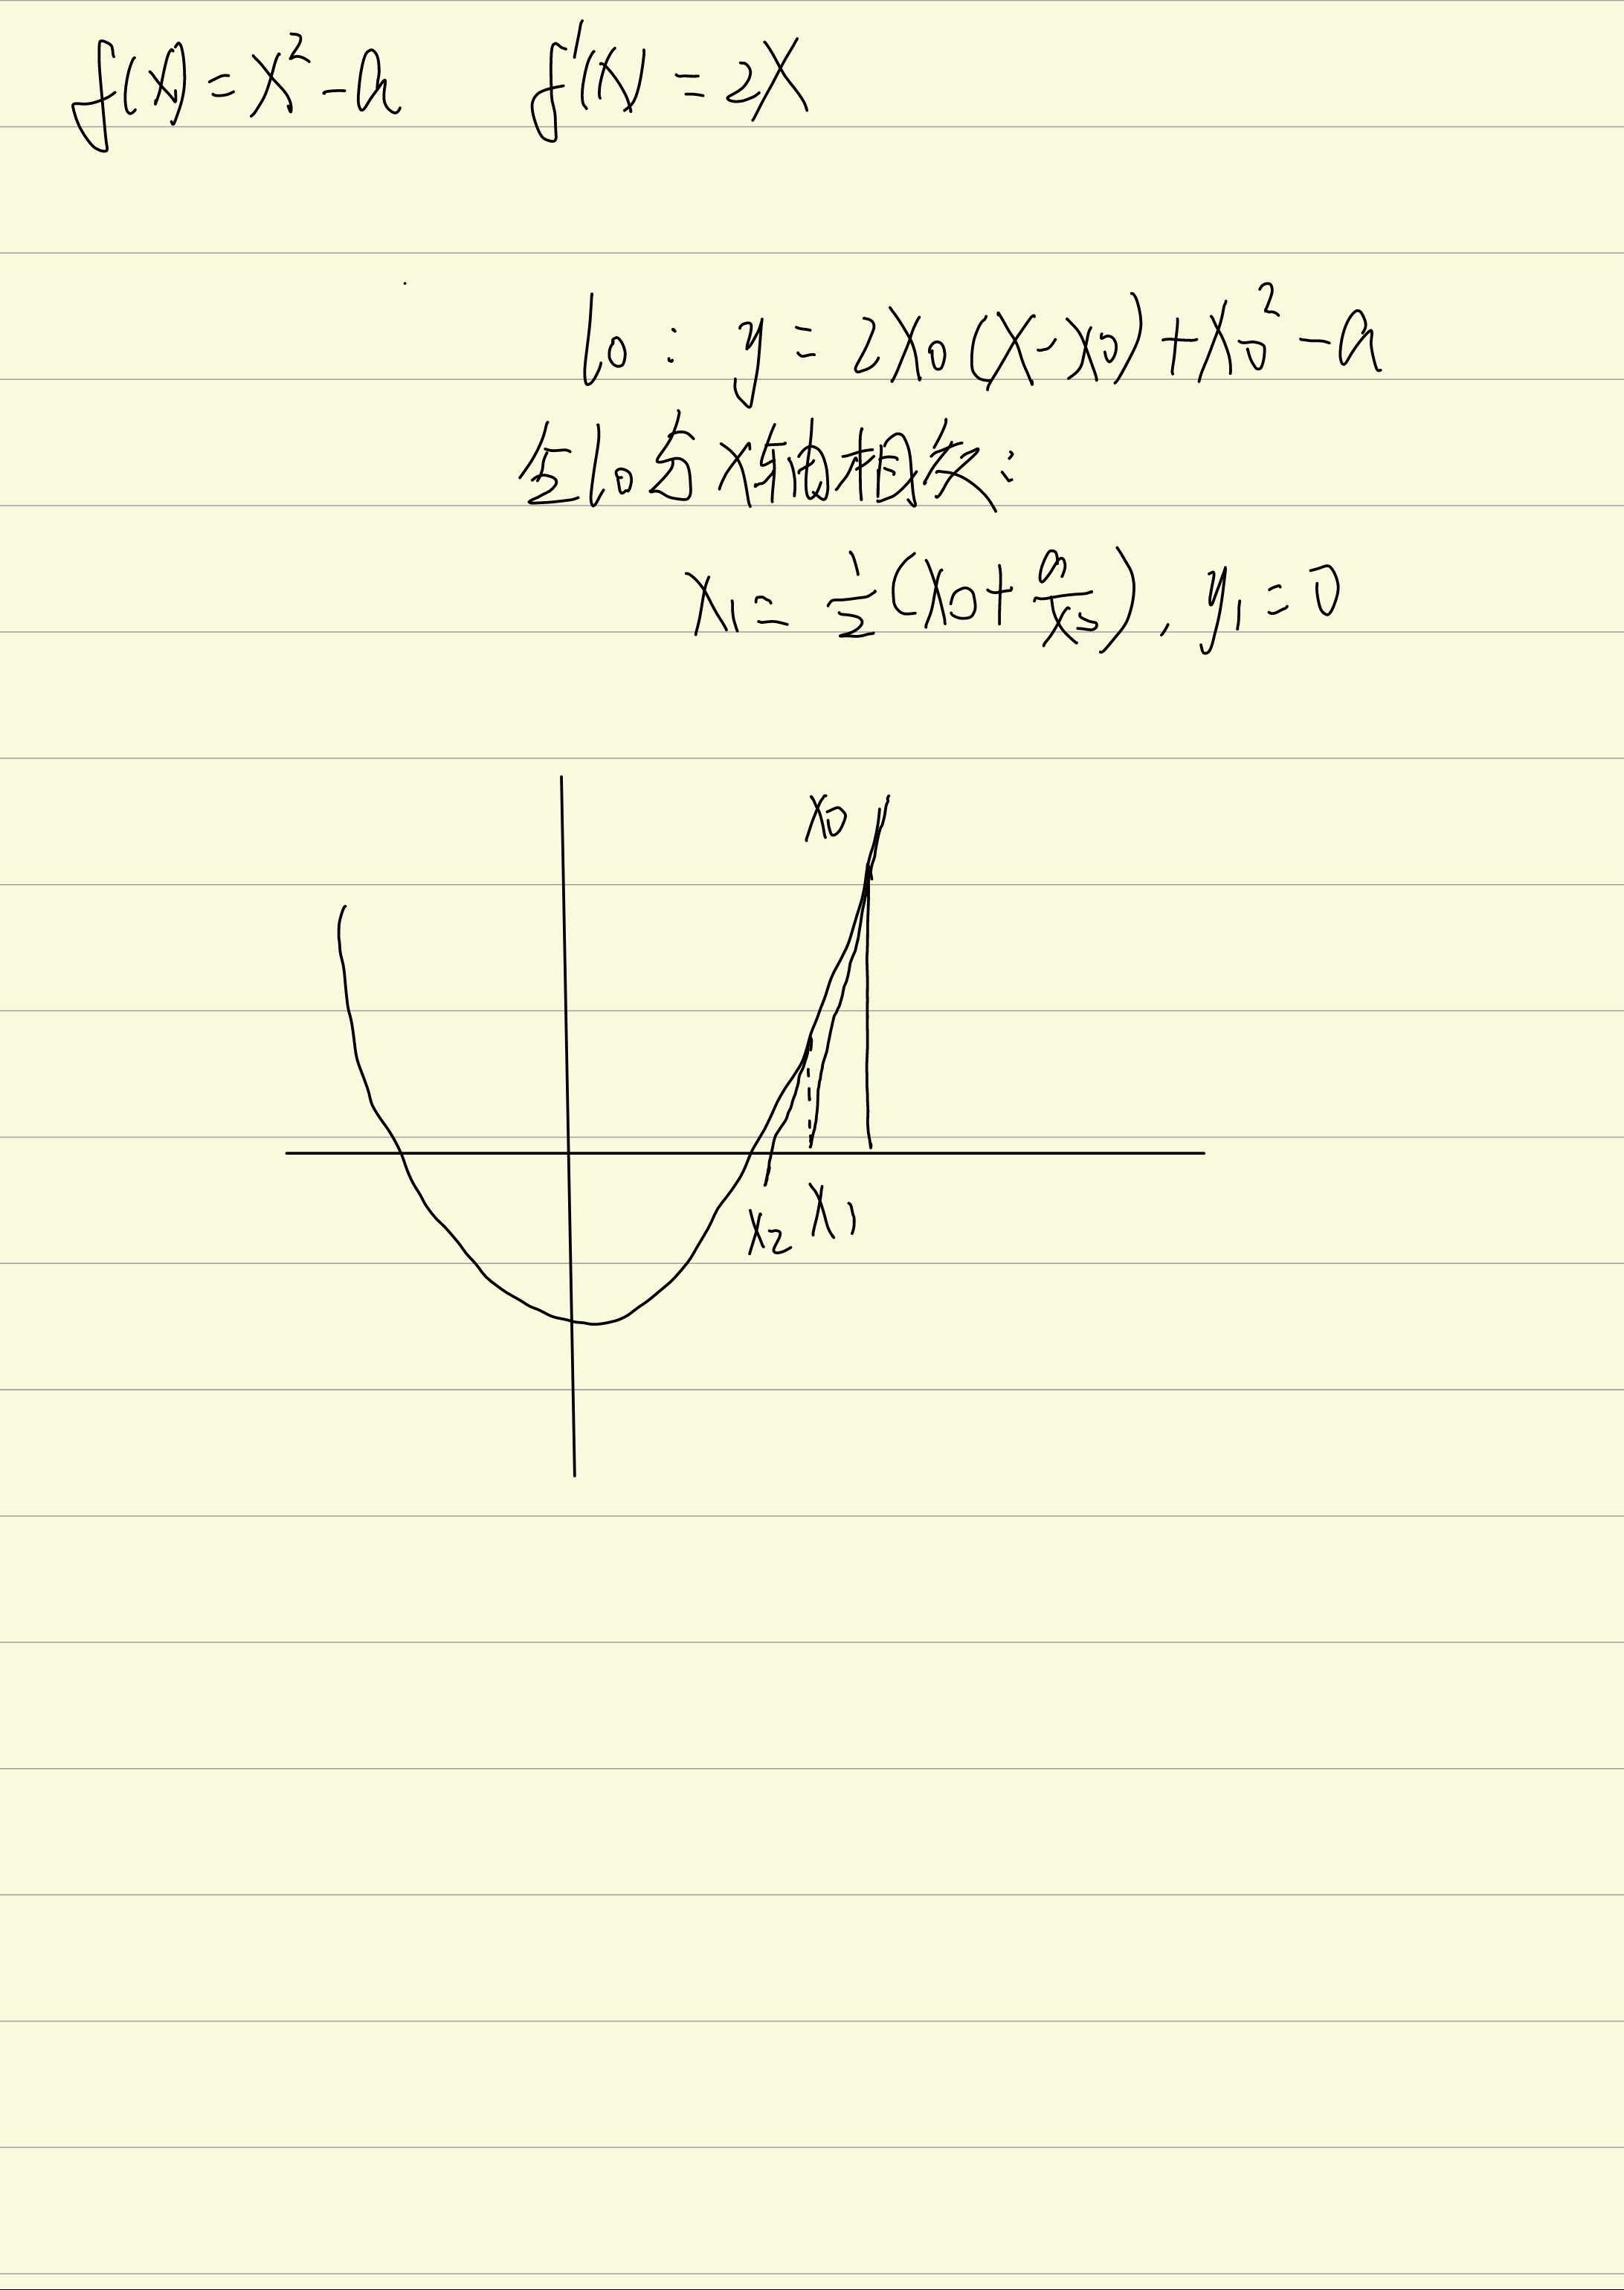 f(x)=x²-a f'(x)=2x
l₀: y=2x₀(x-x₀)+x₀²-a
与x轴相交:
x₁=½(x₀+a/x₀), y₁=0
x₀
x₂ x₁